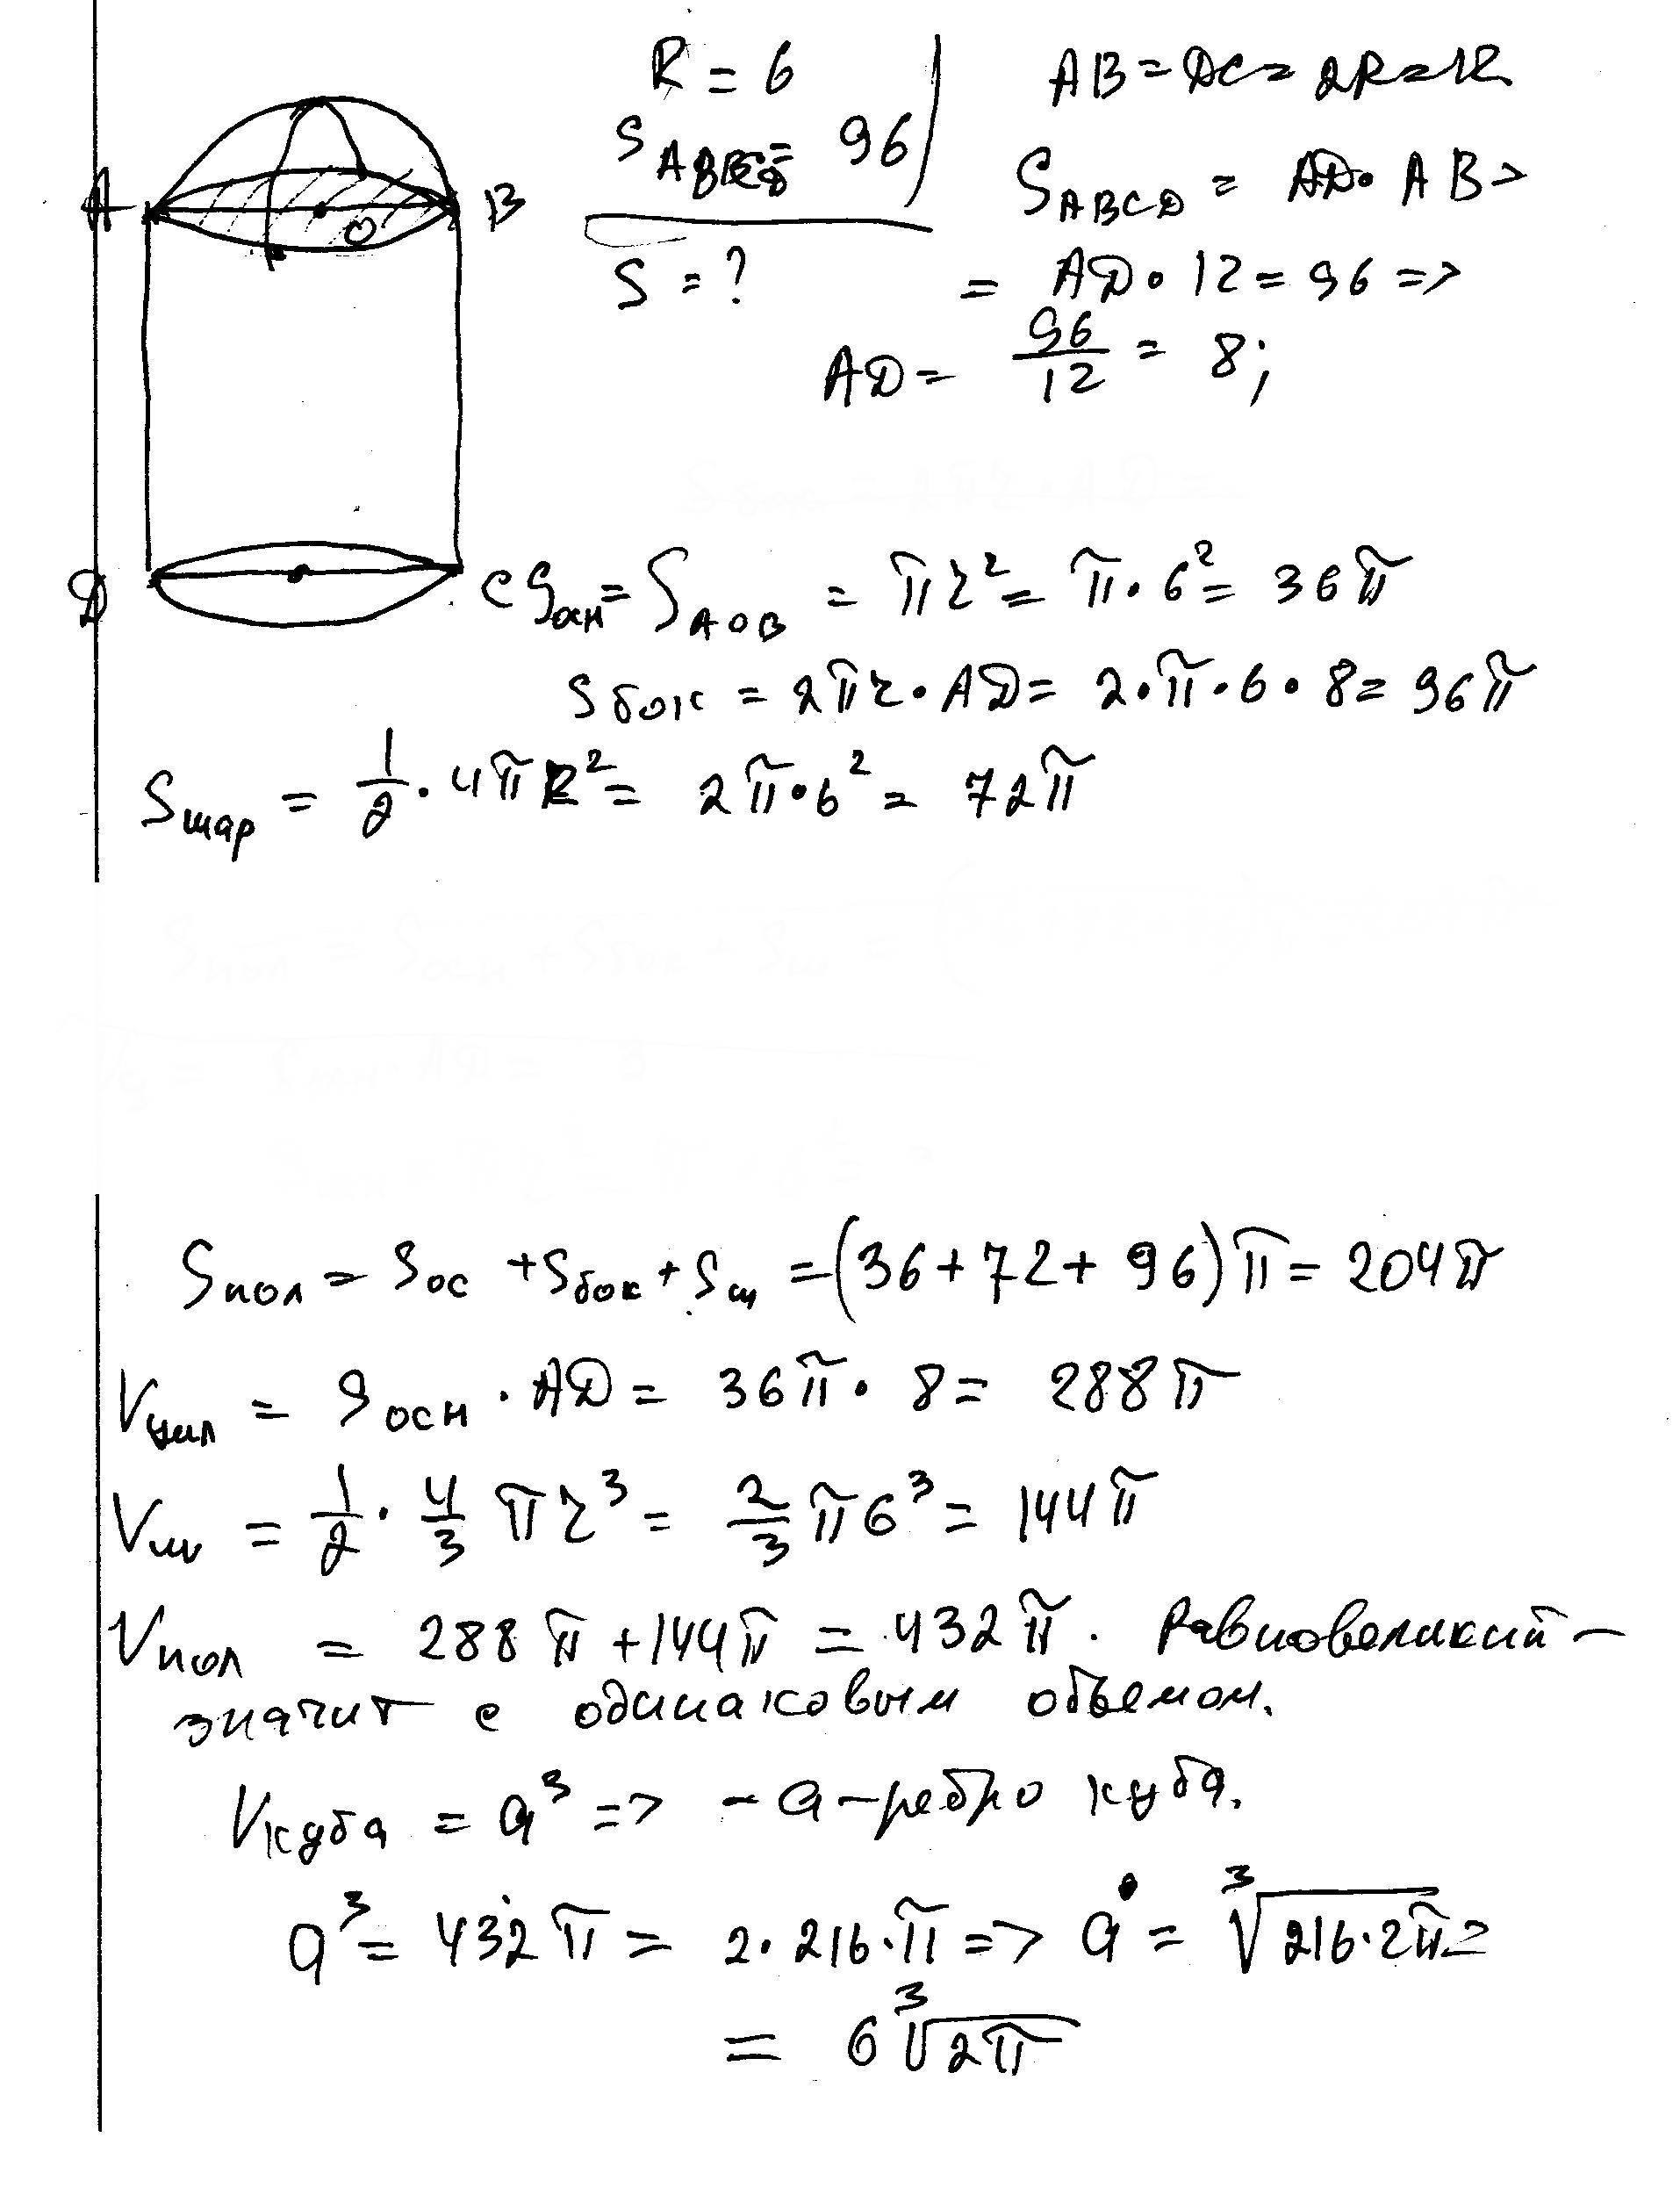 R = 6
S ABCD = 96
S = ?
AB = DC = 2R = 12
S ABCD = AD · AB =
= AD · 12 = 96 =>
AD = 96/12 = 8;
A
B
O
D
C
Sосн = S AOB = πr² = π·6² = 36π
Sбок = 2πr · AD = 2·π·6·8 = 96π
Sшар = 1/2 · 4πR² = 2π·6² = 72π
Sпол = Sос + Sбок + Sш = (36+72+96)π = 204π
Vцил = Sосн · AD = 36π · 8 = 288π
Vш = 1/2 · 4/3 πr³ = 2/3 π6³ = 144π
Vпол = 288π + 144π = 432π. Равновеликий –
значит с одинаковым объемом.
Vкуба = a³ => – a – ребро куба.
a³ = 432π = 2·216·π => a = ³√216·2π =
= 6 ³√2π